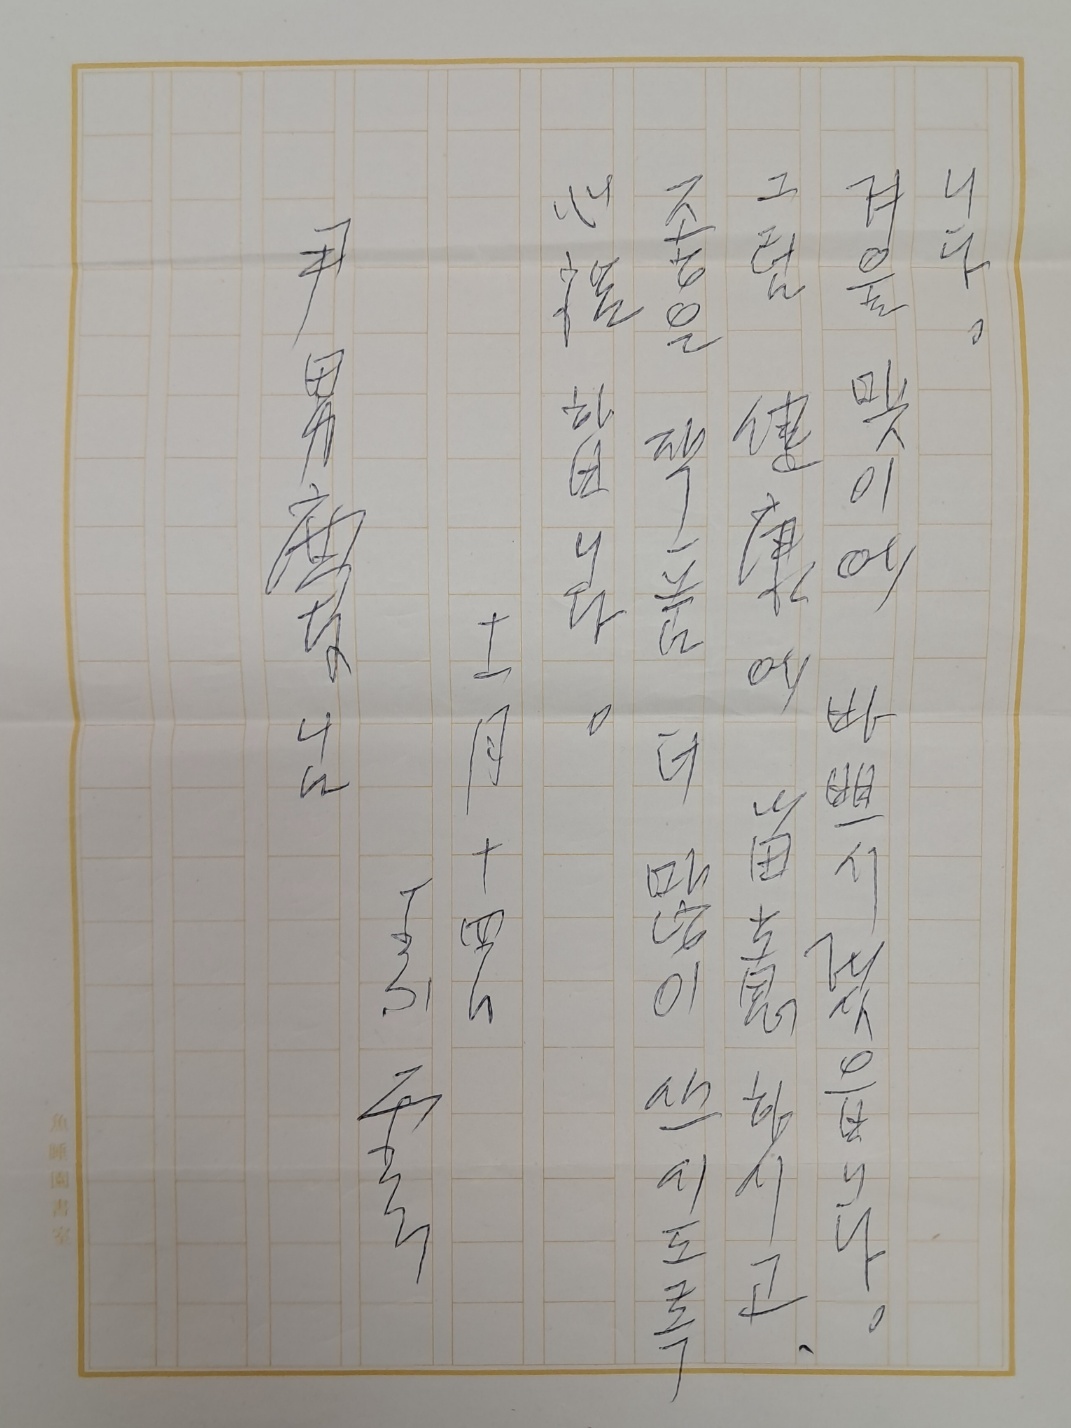 니다。
겨울 맞이에 바쁘시겠읍니다。
그럼 健康에 留意하시고、
좋은 작품 더 많이 쓰시도록
心祝합니다。
十一月 十四日
尹男慶 님